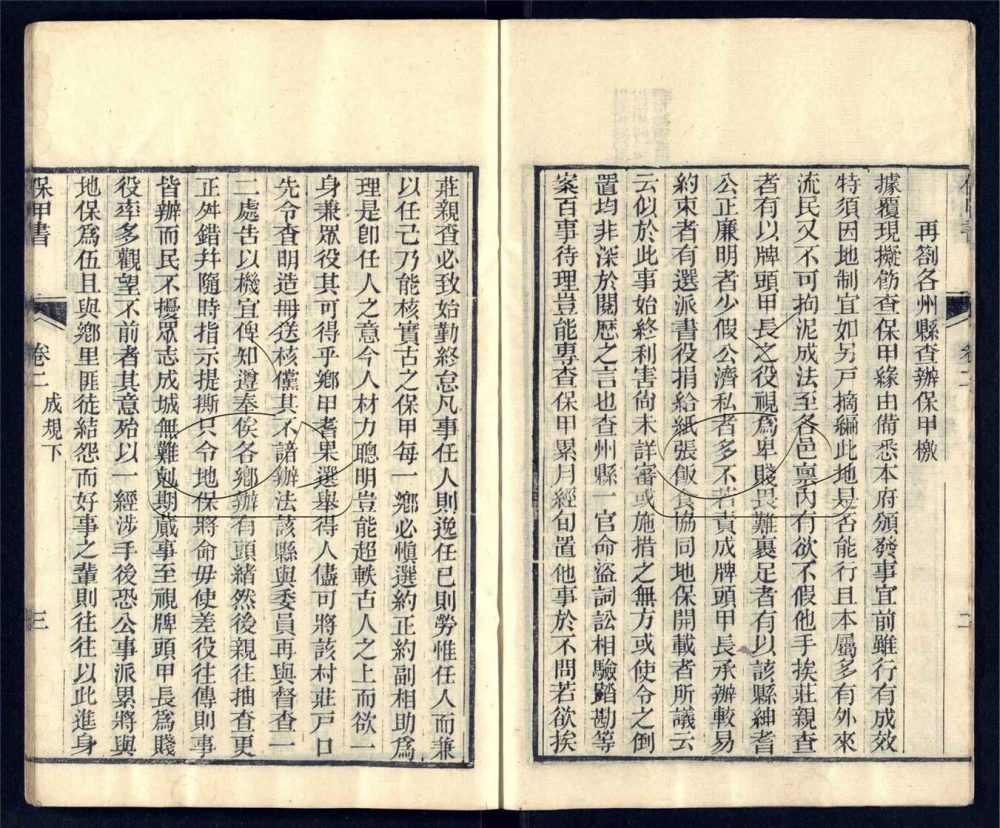 再劄各州縣查辦保甲檄
據覆現擬飭查保甲緣由備悉本府頒發事宜前雖行有成效
特須因地制宜如另戸摘編此地是否能行且本屬多有外來
流民又不可拘泥成法至各邑稟內有欲不假他手挨莊親查
者有以牌頭甲長之役視爲卑賤畏難裹足者有以該縣紳耆
公正廉明者少假公濟私者多不若責成牌頭甲長承辦較易
約束者有選派書役捐給紙張飯食協同地保開載者所議云
云似於此事始終利害尙未詳審或施措之無方或使令之倒
置均非深於閱歷之言也查州縣一官命盜詞訟相驗踏勘等
案百事待理豈能專查保甲累月經旬置他事於不問若欲挨
莊親查必致始勤終怠凡事任人則逸任已則勞惟任人而兼
以任己乃能核實古之保甲每一鄉必愼選約正約副相助爲
理是卽任人之意今人材力聰明豈能超軼古人之上而欲一
身兼眾役其可得乎鄉甲耆果選舉得人儘可將該村莊戸口
先令查明造冊送核儻其不諳辦法該縣與委員再與督查一
二處告以機宜俾知遵奉俟各鄉辦有頭緒然後親往抽查更
正舛錯幷隨時指示提撕只令地保將命毋使差役往傳則事
皆辦而民不擾眾志成城無難剋期蕆事至視牌頭甲長爲賤
役率多觀望不前者其意殆以一經涉手後恐公事派累將與
地保爲伍且與鄉里匪徒結怨而好事之輩則往往以此進身
保甲書
卷二
成規下
三